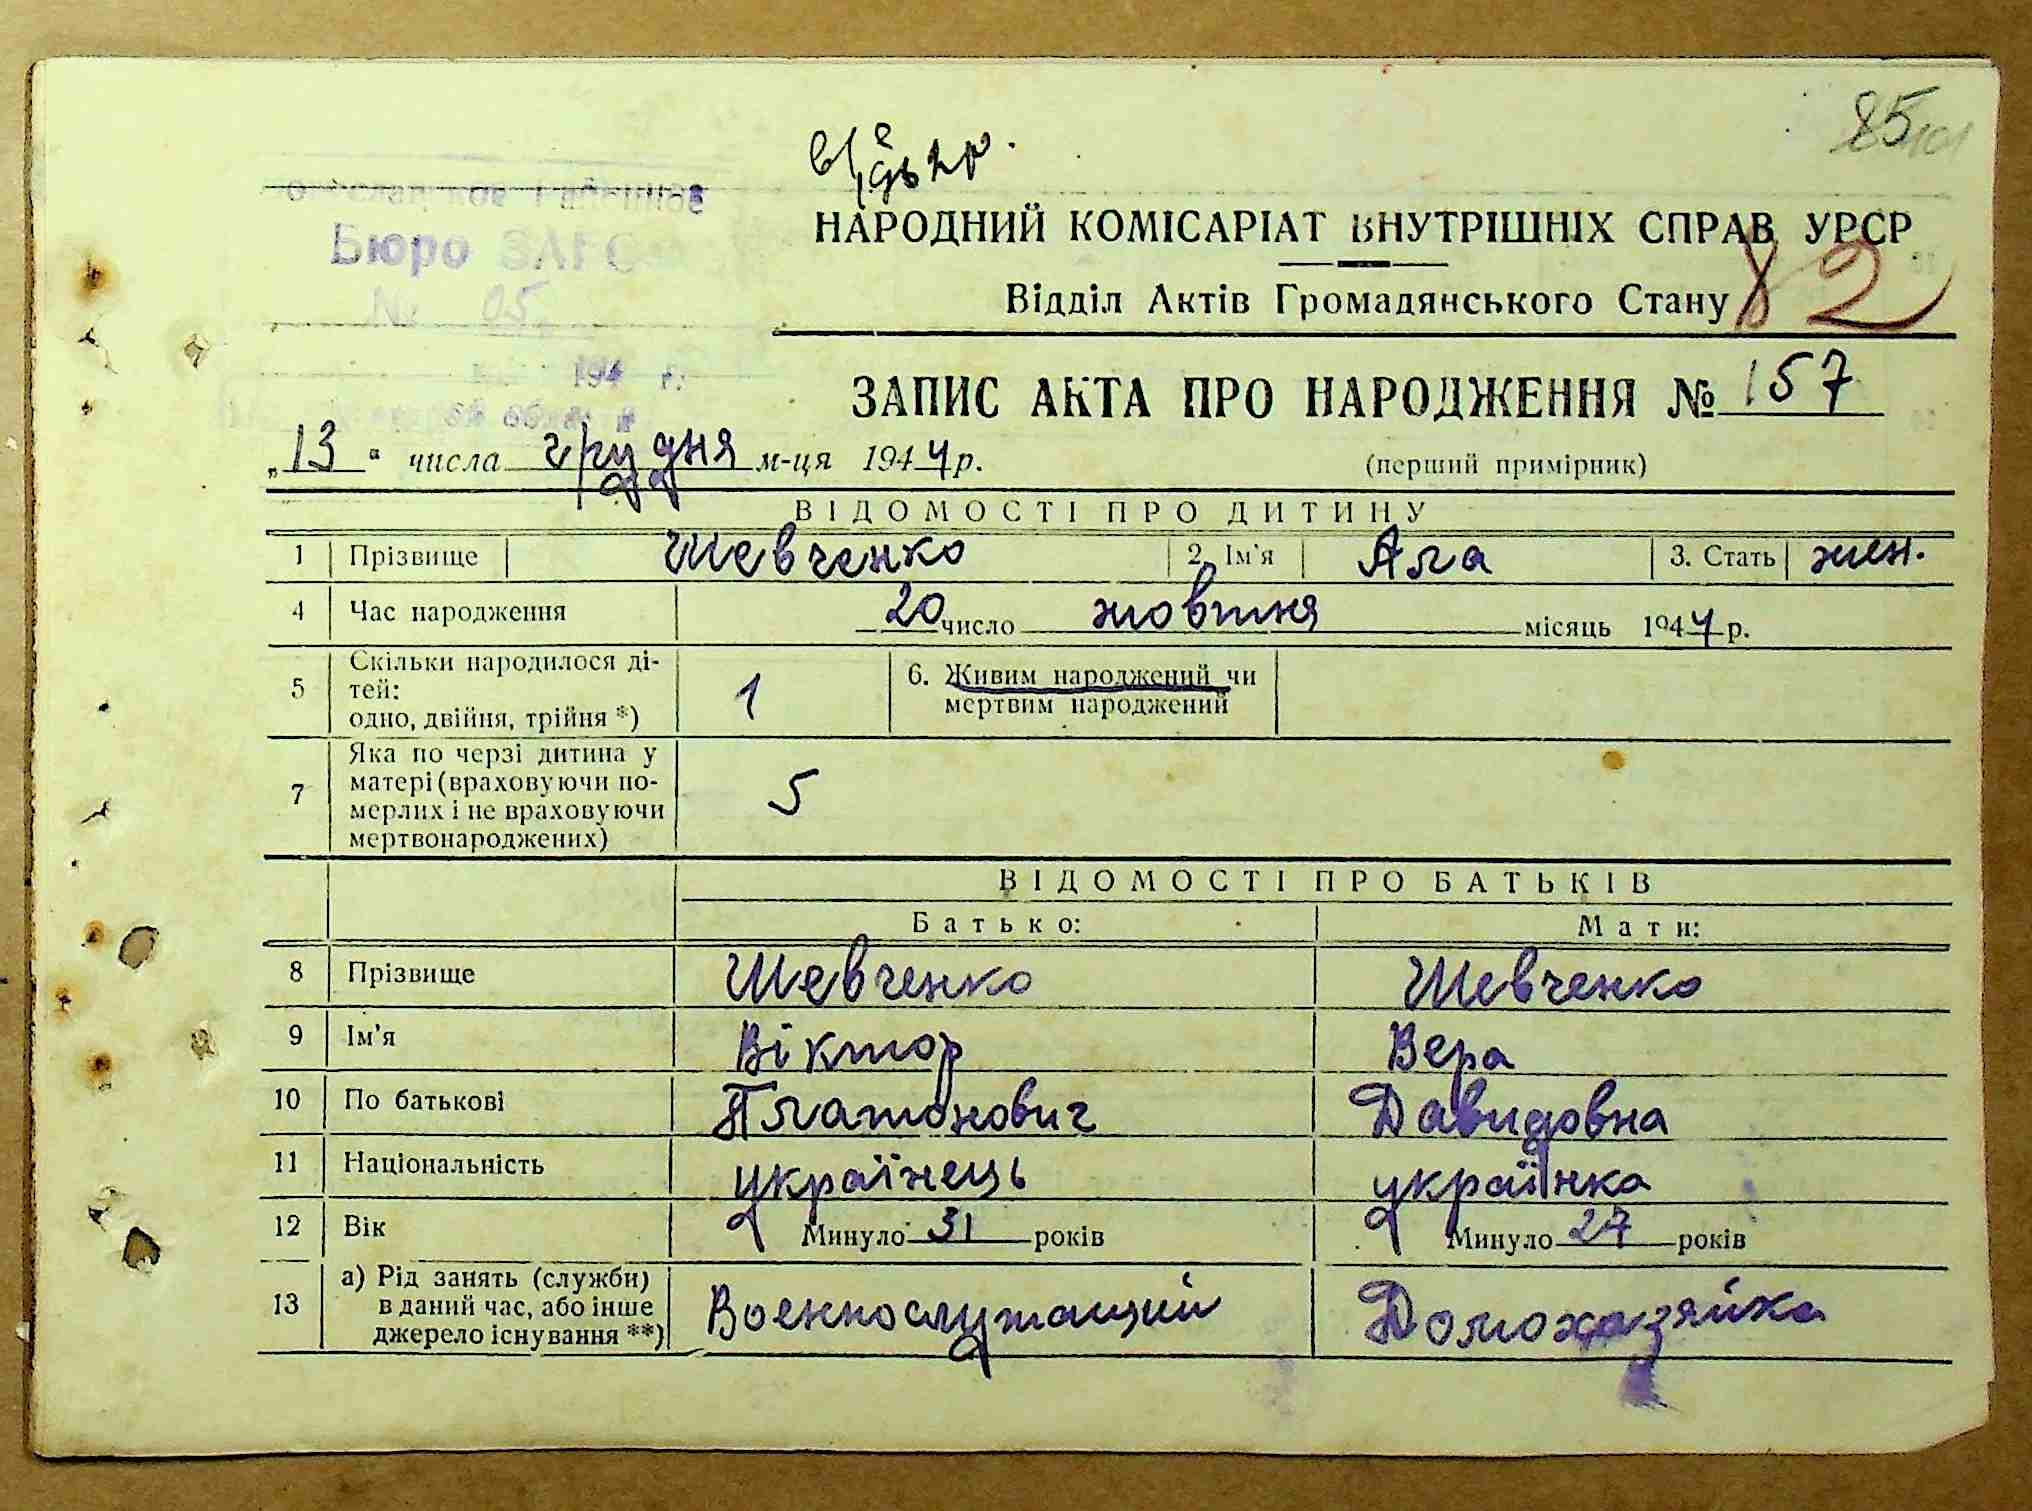 85
НАРОДНИЙ КОМІСАРІАТ ВНУТРІШНІХ СПРАВ УРСР
Бюро ЗАГС
Відділ Актів Громадянського Стану 82
№ 05
194 г.
ЗАПИС АКТА ПРО НАРОДЖЕННЯ № 157
„13" числа грудня м-ця 1944 р.
(перший примірник)
ВІДОМОСТІ ПРО ДИТИНУ
1 Прізвище Шевченко 2. Ім'я Ала 3. Стать жен.
4 Час народження 20 число жовтня місяць 1944 р.
5 Скільки народилося ді-
тей:
одно, двійня, трійня *) 1
6. Живим народжений чи
мертвим народжений
7 Яка по черзі дитина у
матері (враховуючи по-
мерлих і не враховуючи
мертвонароджених) 5
ВІДОМОСТІ ПРО БАТЬКІВ
Батько: Мати:
8 Прізвище Шевченко Шевченко
9 Ім'я Віктор Вера
10 По батькові Платонович Давидовна
11 Національність українець українка
12 Вік Минуло 31 років Минуло 27 років
13 а) Рід занять (служби)
в даний час, або інше
джерело існування **) Военнослужащий Домохазяйка